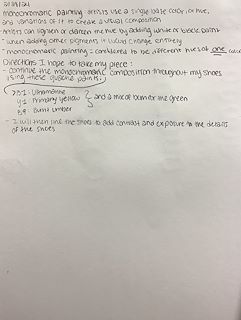 monochromatic painting - artists use a single base color, or hue,
and variations of it to create a visual composition
Artists can lighten or darken the hue by adding white or black paint
when adding other pigments it would change entirely
monochromatic painting = considered to be different hues of one color
Directions I hope to take my piece:
- continue the monochromatic composition throughout my shoes
using these gouache paints:
Ultramarine
Primary Yellow } and a mix of both for the green
Burnt Umber
- I will then line the shoes to add contrast and exposure to the details
of the shoes